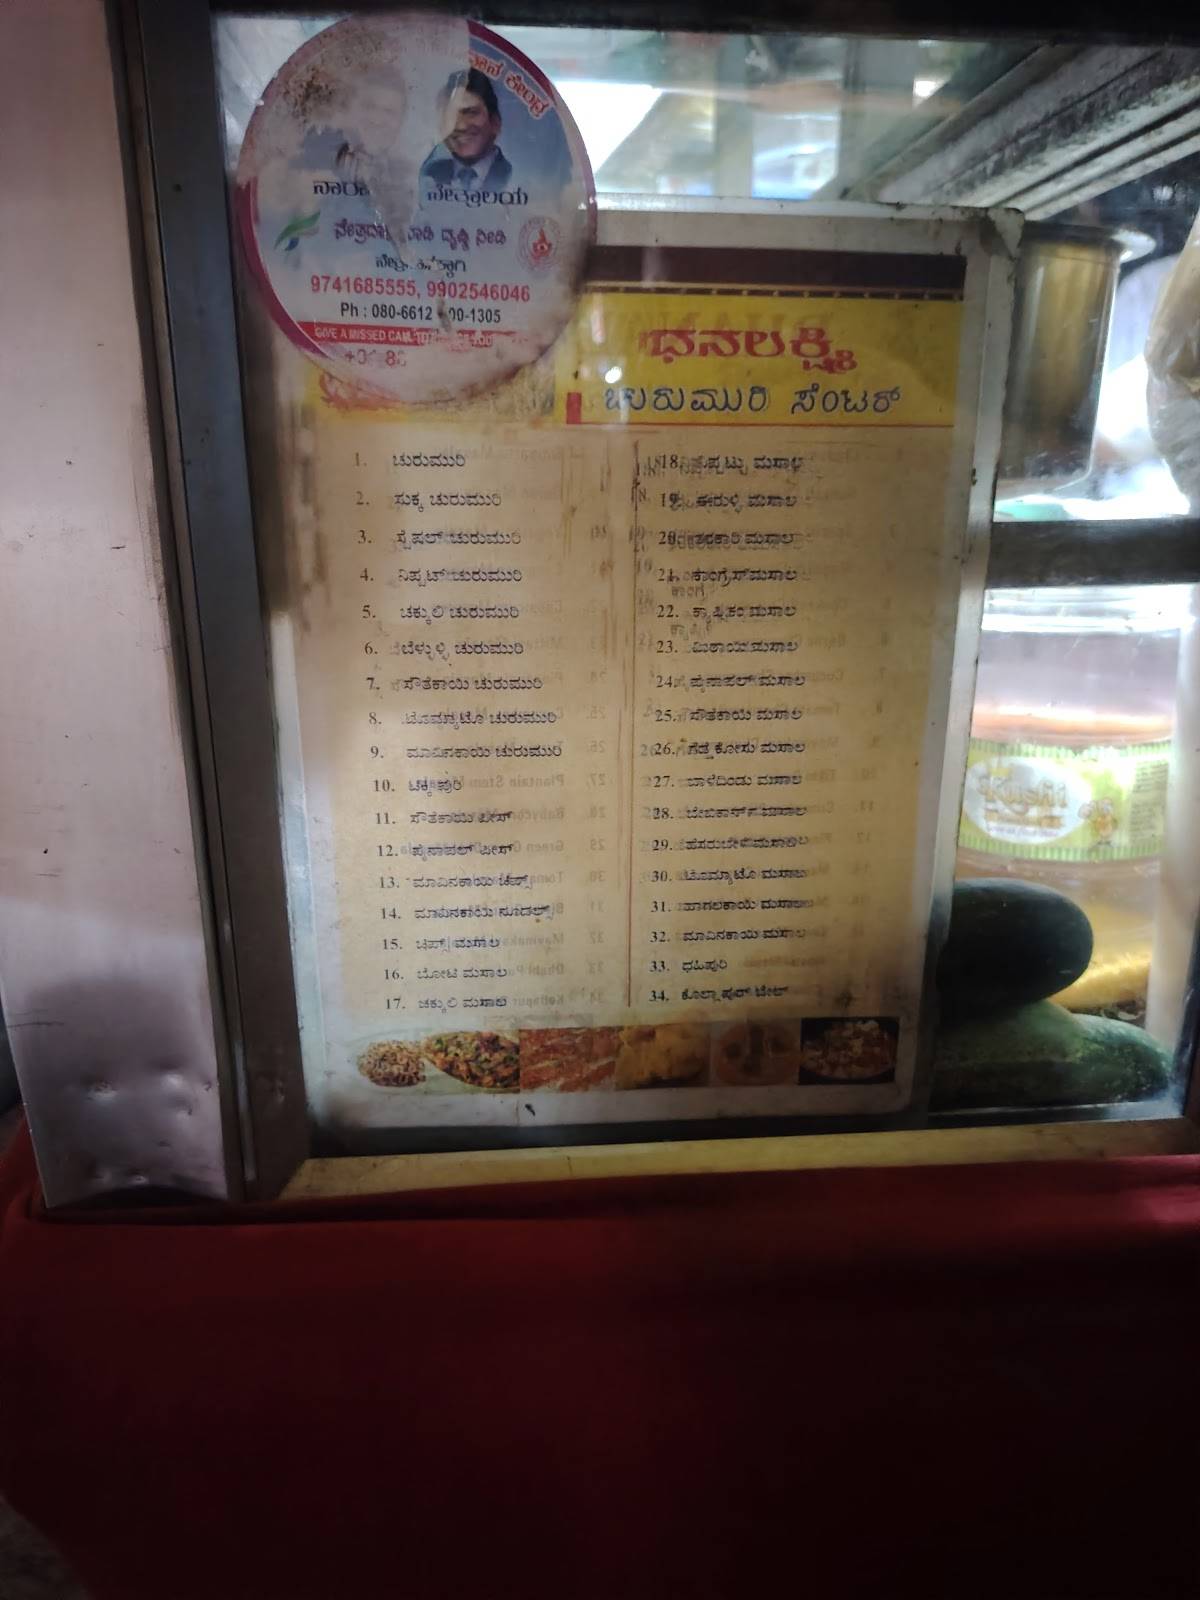 ನೇತ್ರಾಲಯ
ದೃಷ್ಟಿ ನೀಡಿ
9741685555, 9902546046
Ph : 080-6612
00-1305
GIVE A MISSED CALL TO
ಧನಲಕ್ಷ್ಮಿ
ಚುರುಮುರಿ ಸೆಂಟರ್
1. ಚುರುಮುರಿ
2. ಸುಕ್ಕ ಚುರುಮುರಿ
3. ಸ್ಪೆಷಲ್ ಚುರುಮುರಿ
4. ನಿಪ್ಪಟ್ ಚುರುಮುರಿ
5. ಚಕ್ಕುಲಿ ಚುರುಮುರಿ
6. ಬೆಳ್ಳುಳ್ಳಿ ಚುರುಮುರಿ
7. ಸೌತೆಕಾಯಿ ಚುರುಮುರಿ
8. ಟೊಮ್ಯಾಟೊ ಚುರುಮುರಿ
9. ಮಾವಿನಕಾಯಿ ಚುರುಮುರಿ
10. ಟಿಕ್ಕಿಪುರಿ
11. ಸೌತೆಕಾಯಿ ಪೀಸ್
12. ಪೈನಾಪಲ್ ಪೀಸ್
13. ಮಾವಿನಕಾಯಿ ಚಿಪ್ಸ್
14. ಮಾವಿನಕಾಯಿ ನೂಡಲ್ಸ್
15. ಚಿಪ್ಸ್ ಮಸಾಲ
16. ಬೋಟಿ ಮಸಾಲ
17. ಚಕ್ಕುಲಿ ಮಸಾಲ
18. ನಿಪ್ಪಟ್ಟು ಮಸಾಲ
19. ಈರುಳ್ಳಿ ಮಸಾಲ
20. ತರಕಾರಿ ಮಸಾಲ
21. ಕಾಂಗ್ರೆಸ್ ಮಸಾಲ
22. ಕ್ಯಾಪ್ಸಿಕಂ ಮಸಾಲ
23. ಮಿಠಾಯಿ ಮಸಾಲ
24. ಪೈನಾಪಲ್ ಮಸಾಲ
25. ಸೌತೆಕಾಯಿ ಮಸಾಲ
26. ಗೆಡ್ಡೆ ಕೋಸು ಮಸಾಲ
27. ಬಾಳೆದಿಂಡು ಮಸಾಲ
28. ಬೇಬಿಕಾರ್ನ್ ಮಸಾಲ
29. ಹೆಸರುಬೇಳೆ ಮಸಾಲ
30. ಟೊಮ್ಯಾಟೊ ಮಸಾಲ
31. ಹಾಗಲಕಾಯಿ ಮಸಾಲ
32. ಮಾವಿನಕಾಯಿ ಮಸಾಲ
33. ಧಹಿಪುರಿ
34. ಕೊಲ್ಲಾಪುರ್ ಟೇಟ್